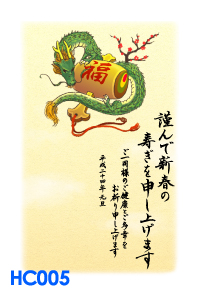 福
謹んで新春の
寿ぎを申し上げます
ご一同様のご健康とご多幸を
お祈り申し上げます
平成二十四年 元旦
HC005